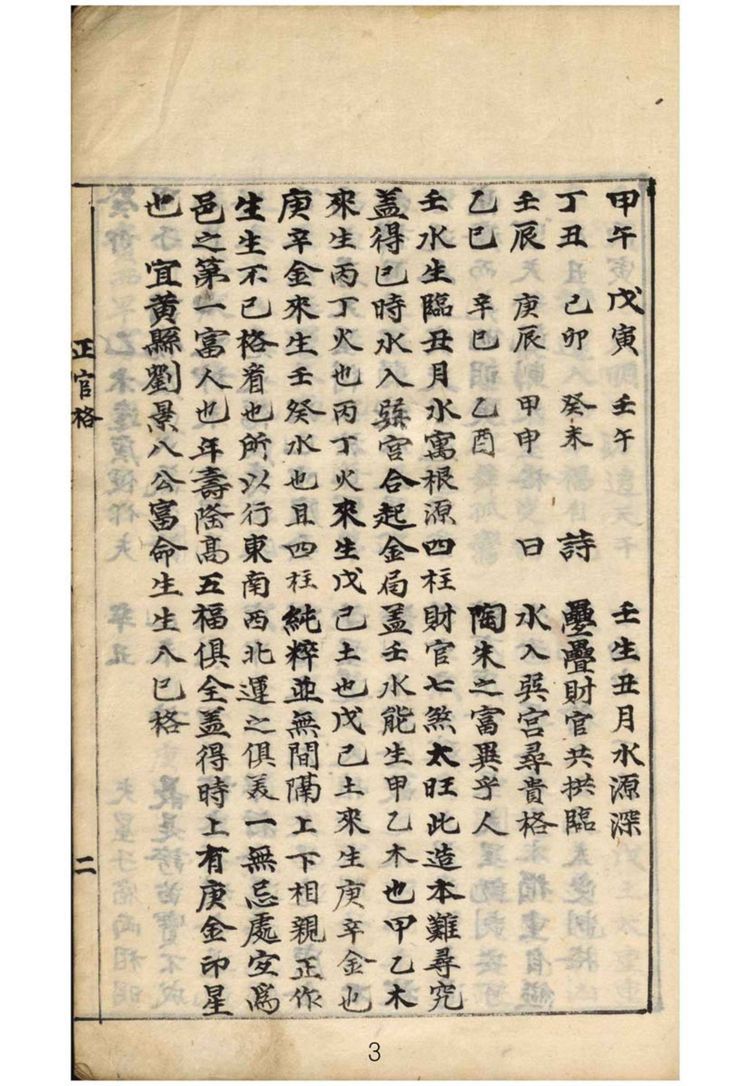 甲午 戊寅 壬午 壬生丑月水源深
丁丑 己卯 癸未 詩 疊疊財官共拱臨
壬辰 庚辰 甲申 曰 水入巽宮尋貴格
乙巳 辛巳 乙酉 陶朱之富異乎人
壬水生臨丑月水寓根源四柱財官七煞太旺此造本難尋究
蓋得巳時水入巽宮合起金局蓋壬水能生甲乙木也甲乙木
來生丙丁火也丙丁火來生戊己土也戊己土來生庚辛金也
庚辛金來生壬癸水也且四柱純粹並無間隔上下相親正作
生生不已格者也所以行東南西北運之俱美一無忌處安爲
邑之第一富人也年壽隆高五福俱全蓋得時上有庚金印星
也 宜黃縣劉景八公富命生生八巳格
正官格 二
3